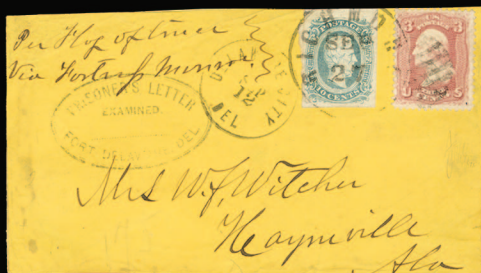 Per Flag of truce
Via Fortress Monroe
PRISONER'S LETTER
EXAMINED.
FORT DELAWARE, DEL
DELAWARE CITY
SEP
12
DEL
RICHMOND
SE
27
POSTAGE
10 CENTS
3
3
Mrs W. F. Witcher
Haynville
Ala